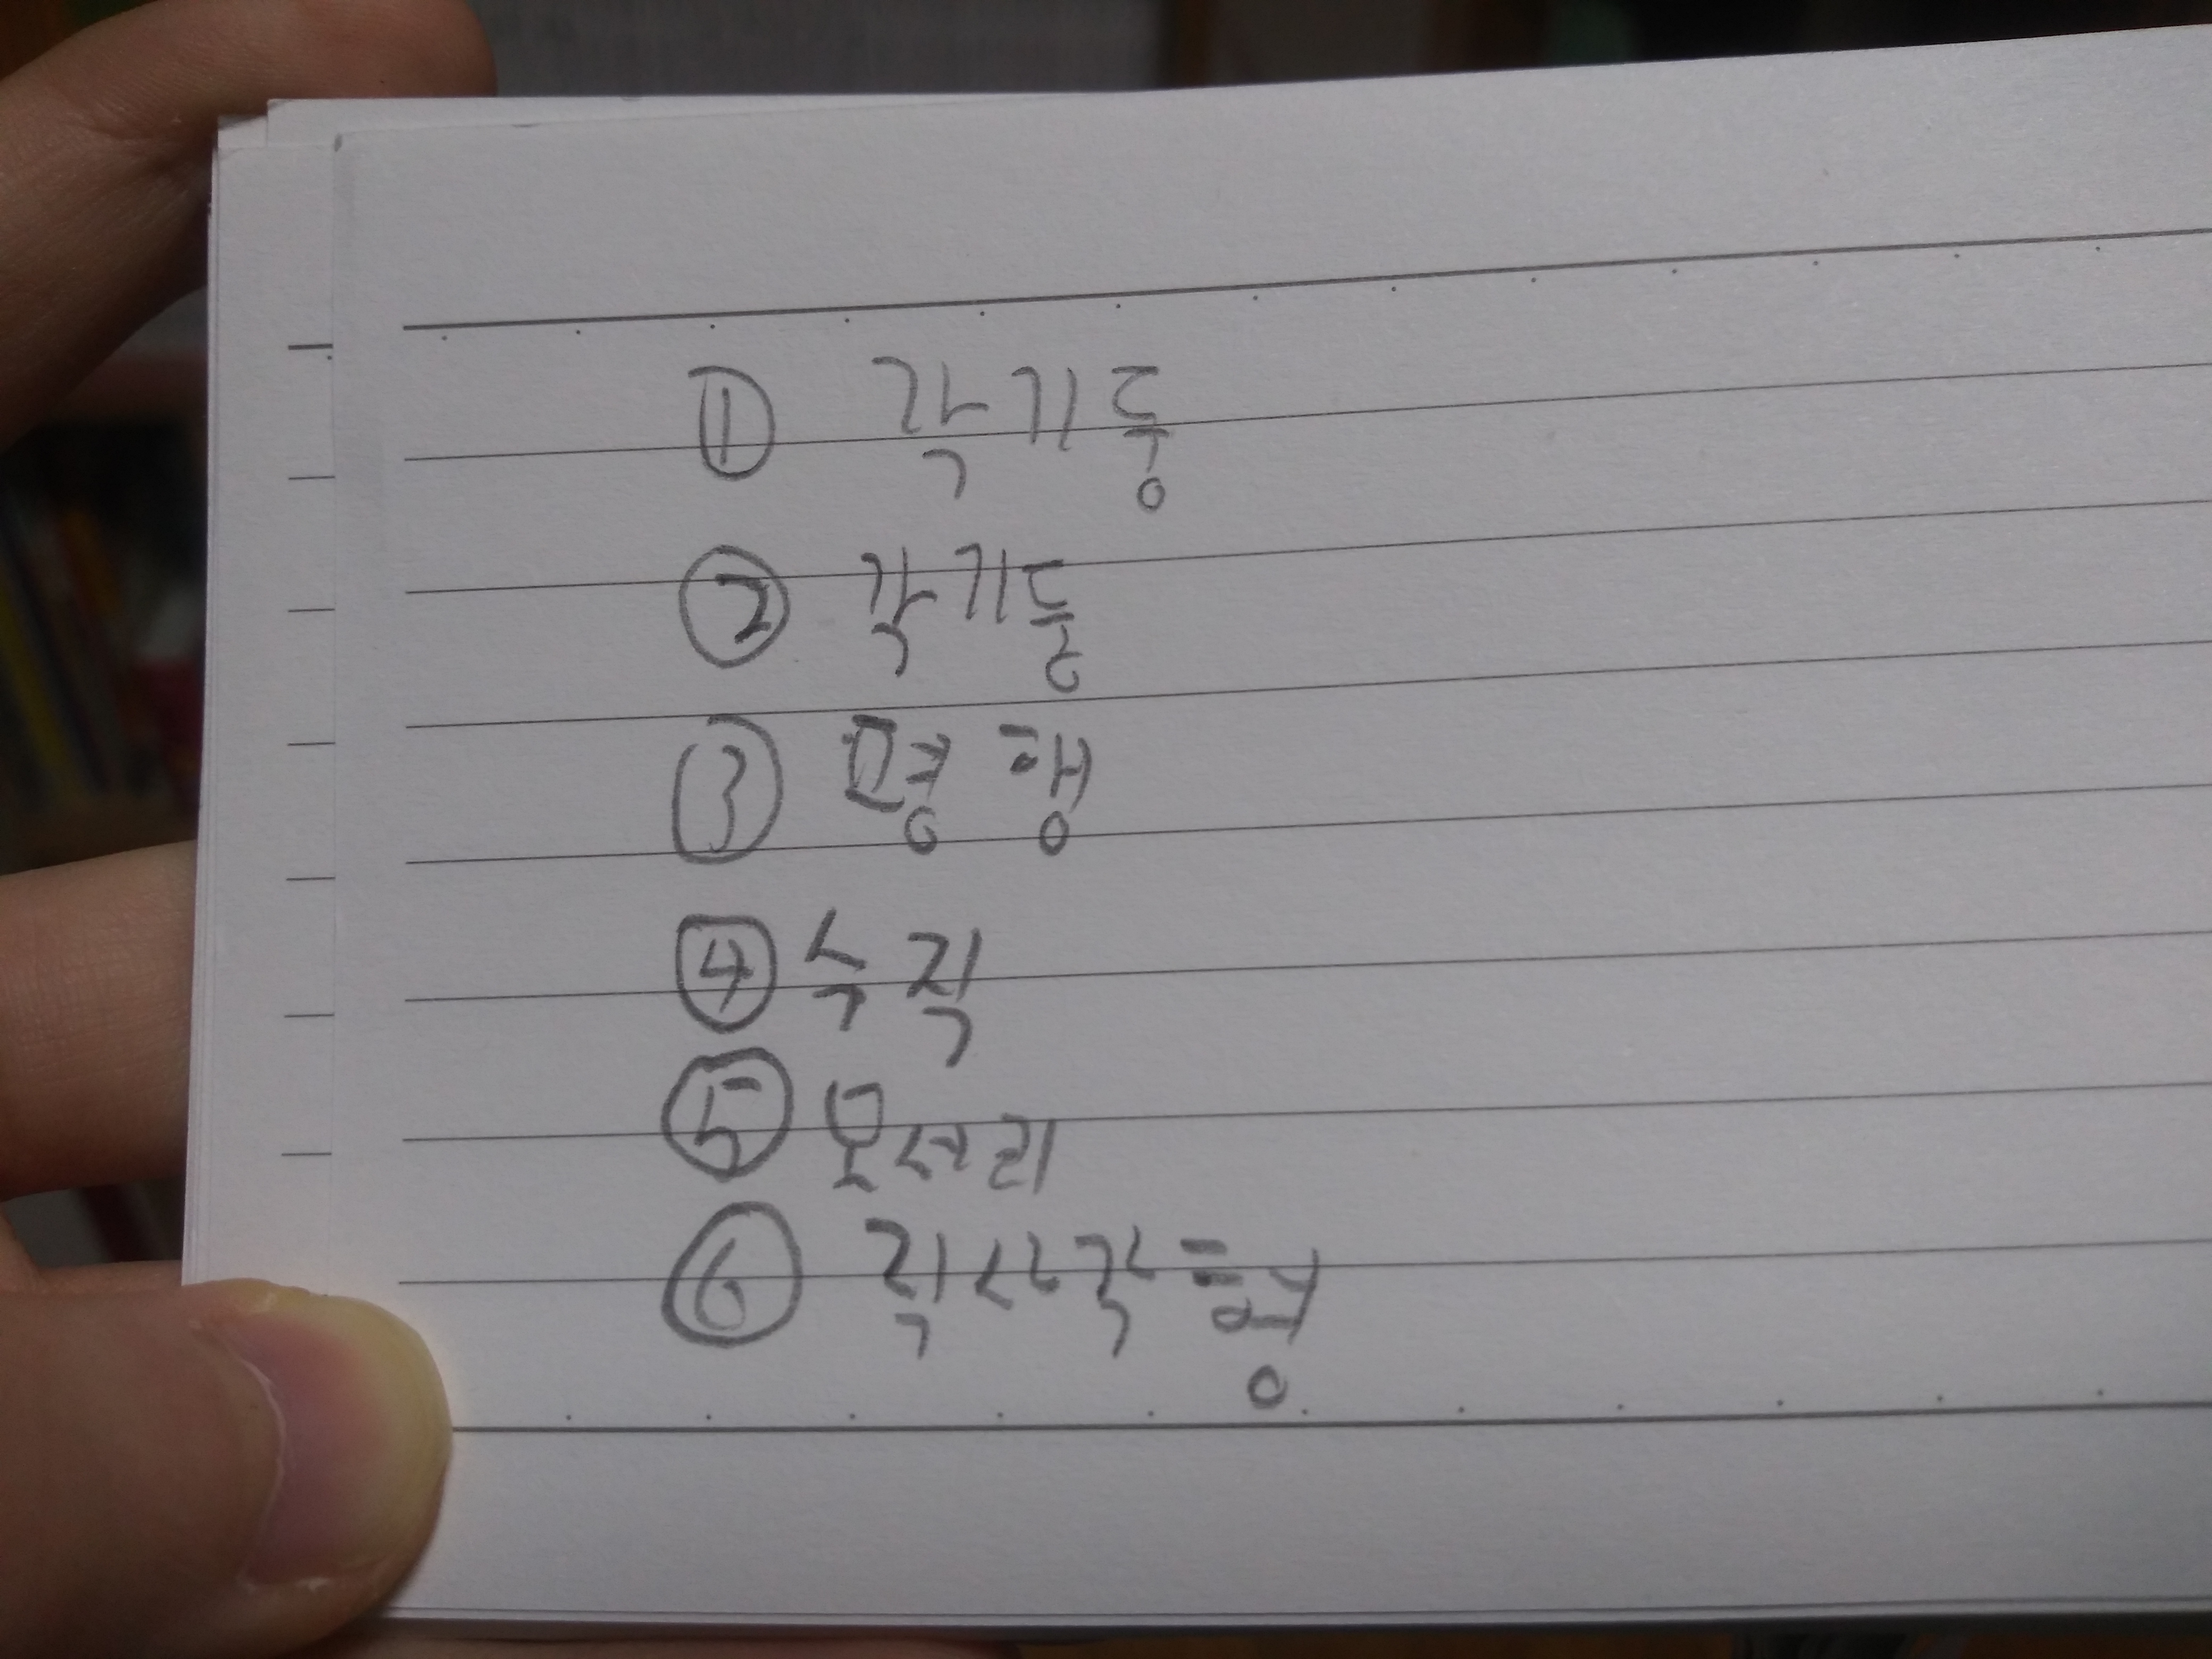 ① 각기둥
② 각기둥
③ 평행
④ 수직
⑤ 모서리
⑥ 직사각형